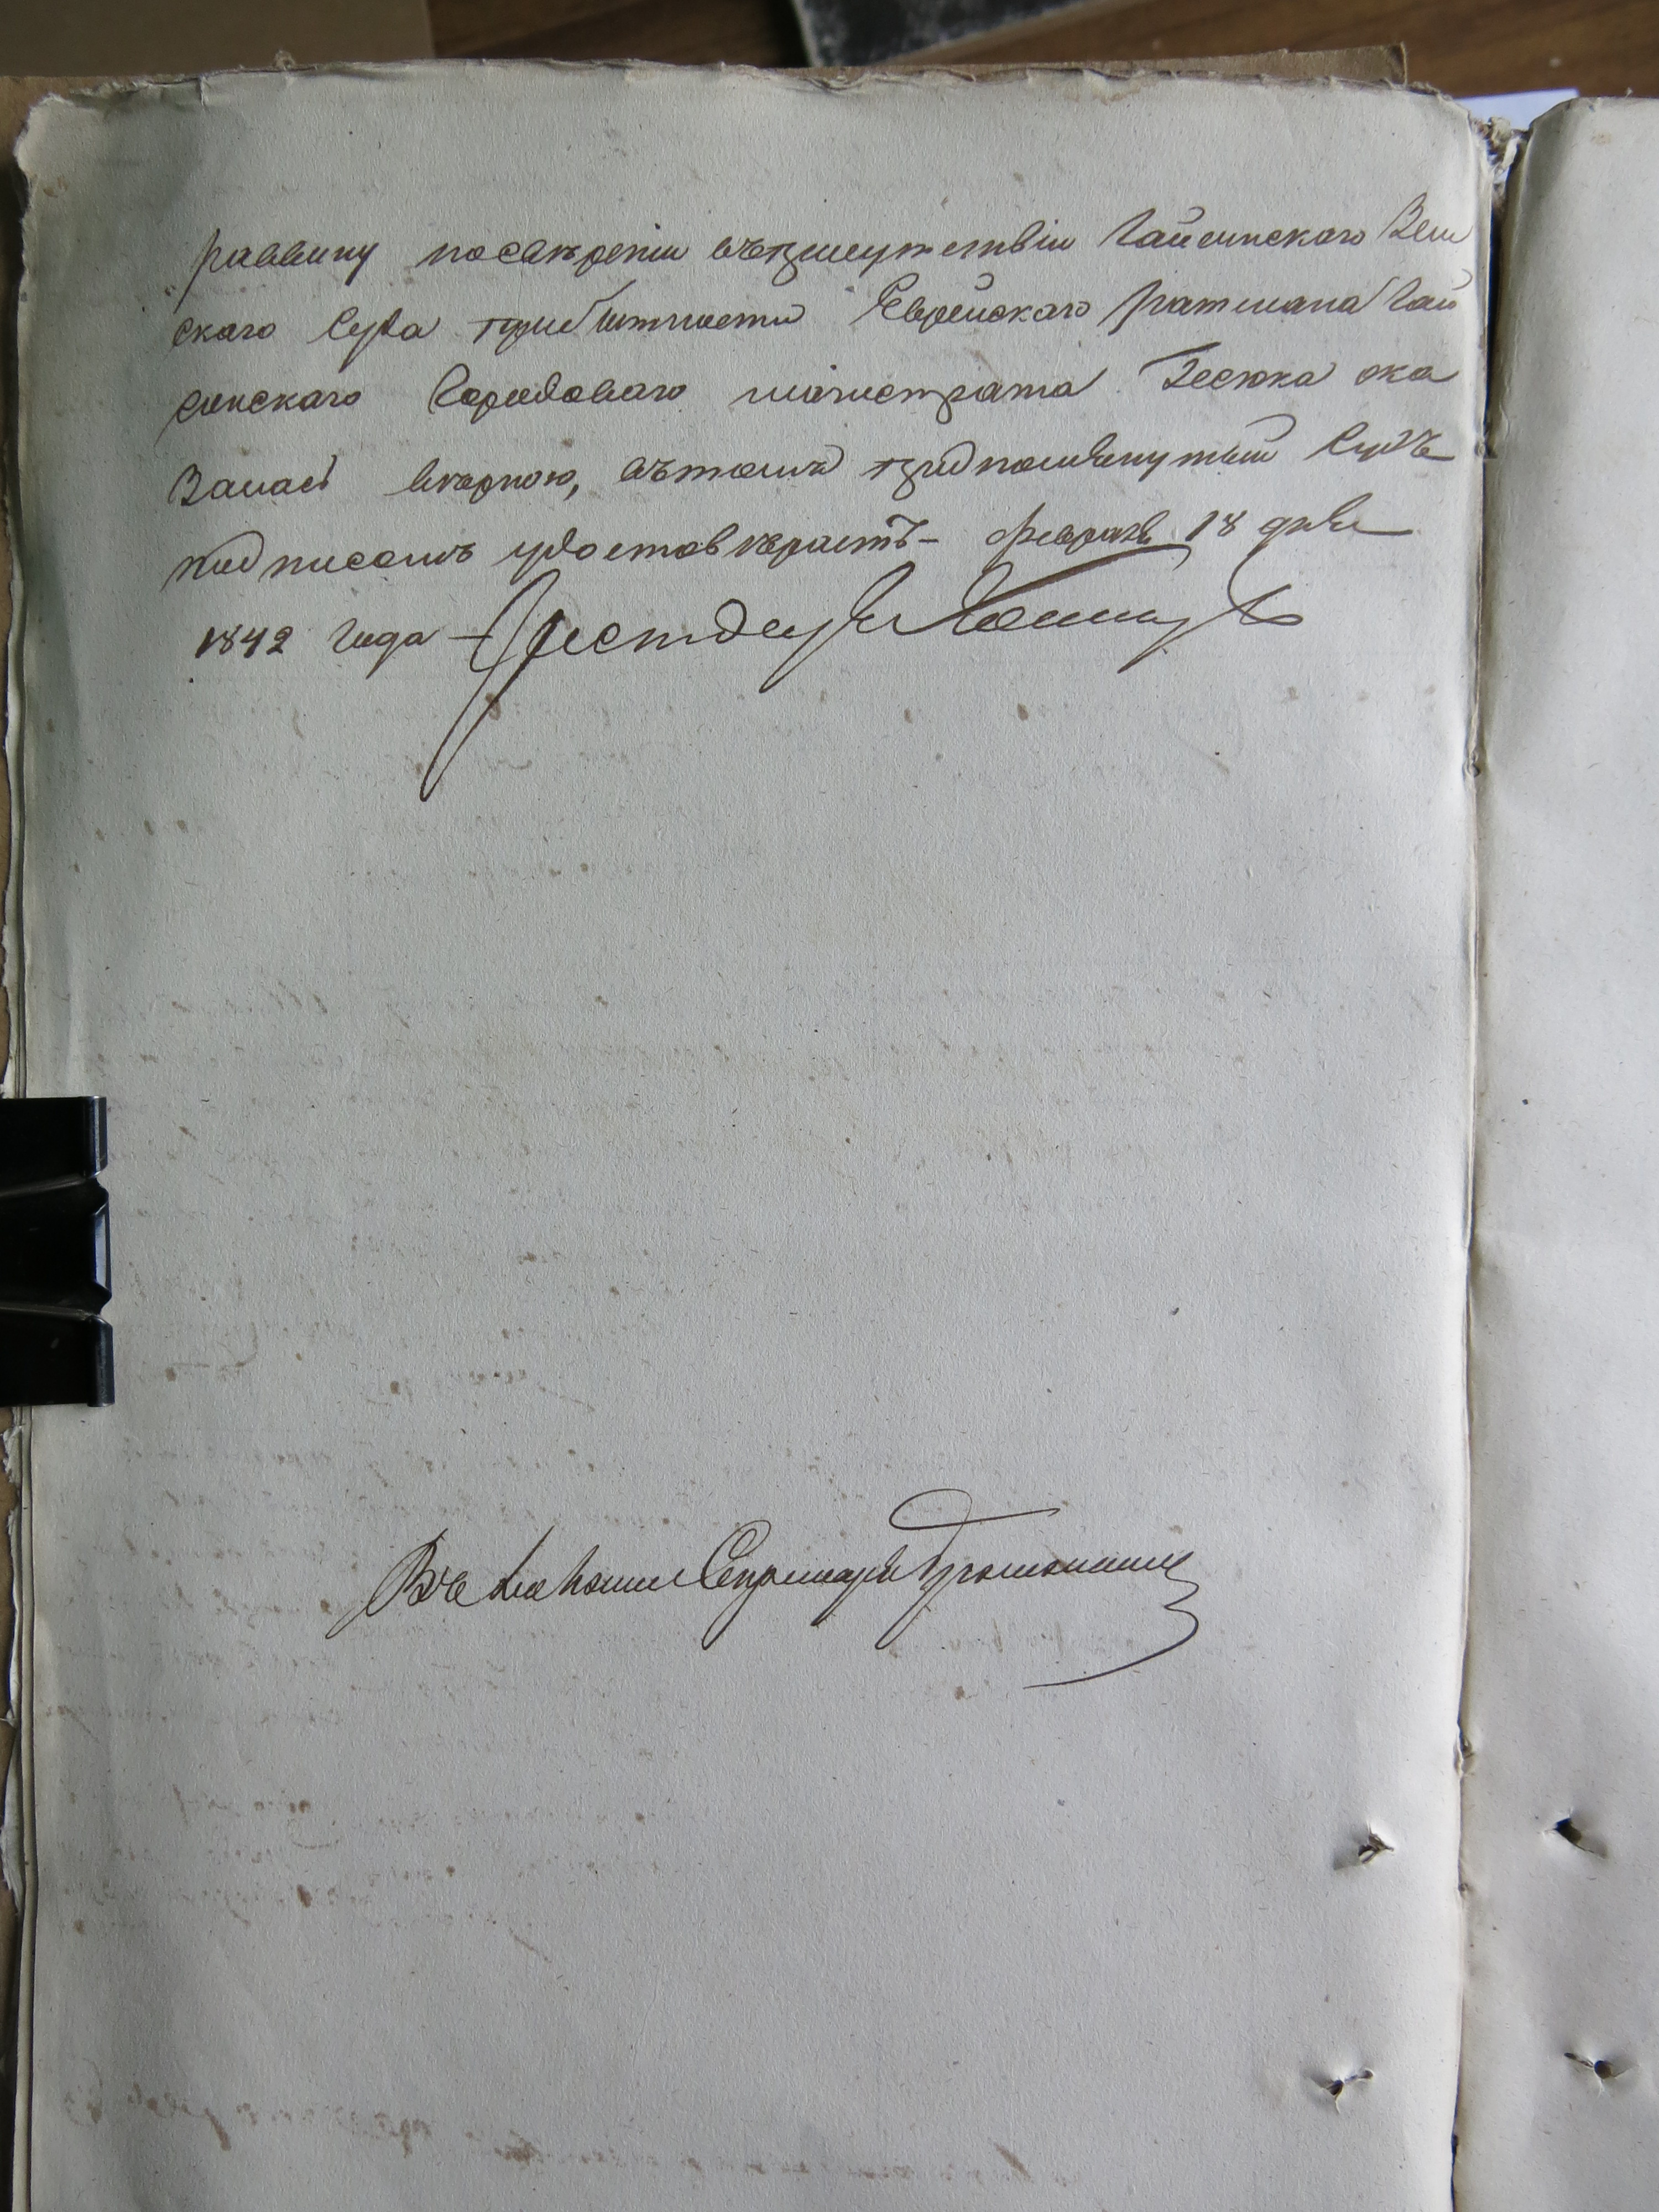 раввину посверкiи въприсутствiи Гайсинскаго Зем
скаго Суда прибытности Еврейскаго Ратмана Гай
синскаго Городоваго магистрата Зеська ока
залась верною, вътомъ предпомянутый Судъ
подписомъ удостоверяетъ – февраля 18 дня
1842 года –
Секретарь